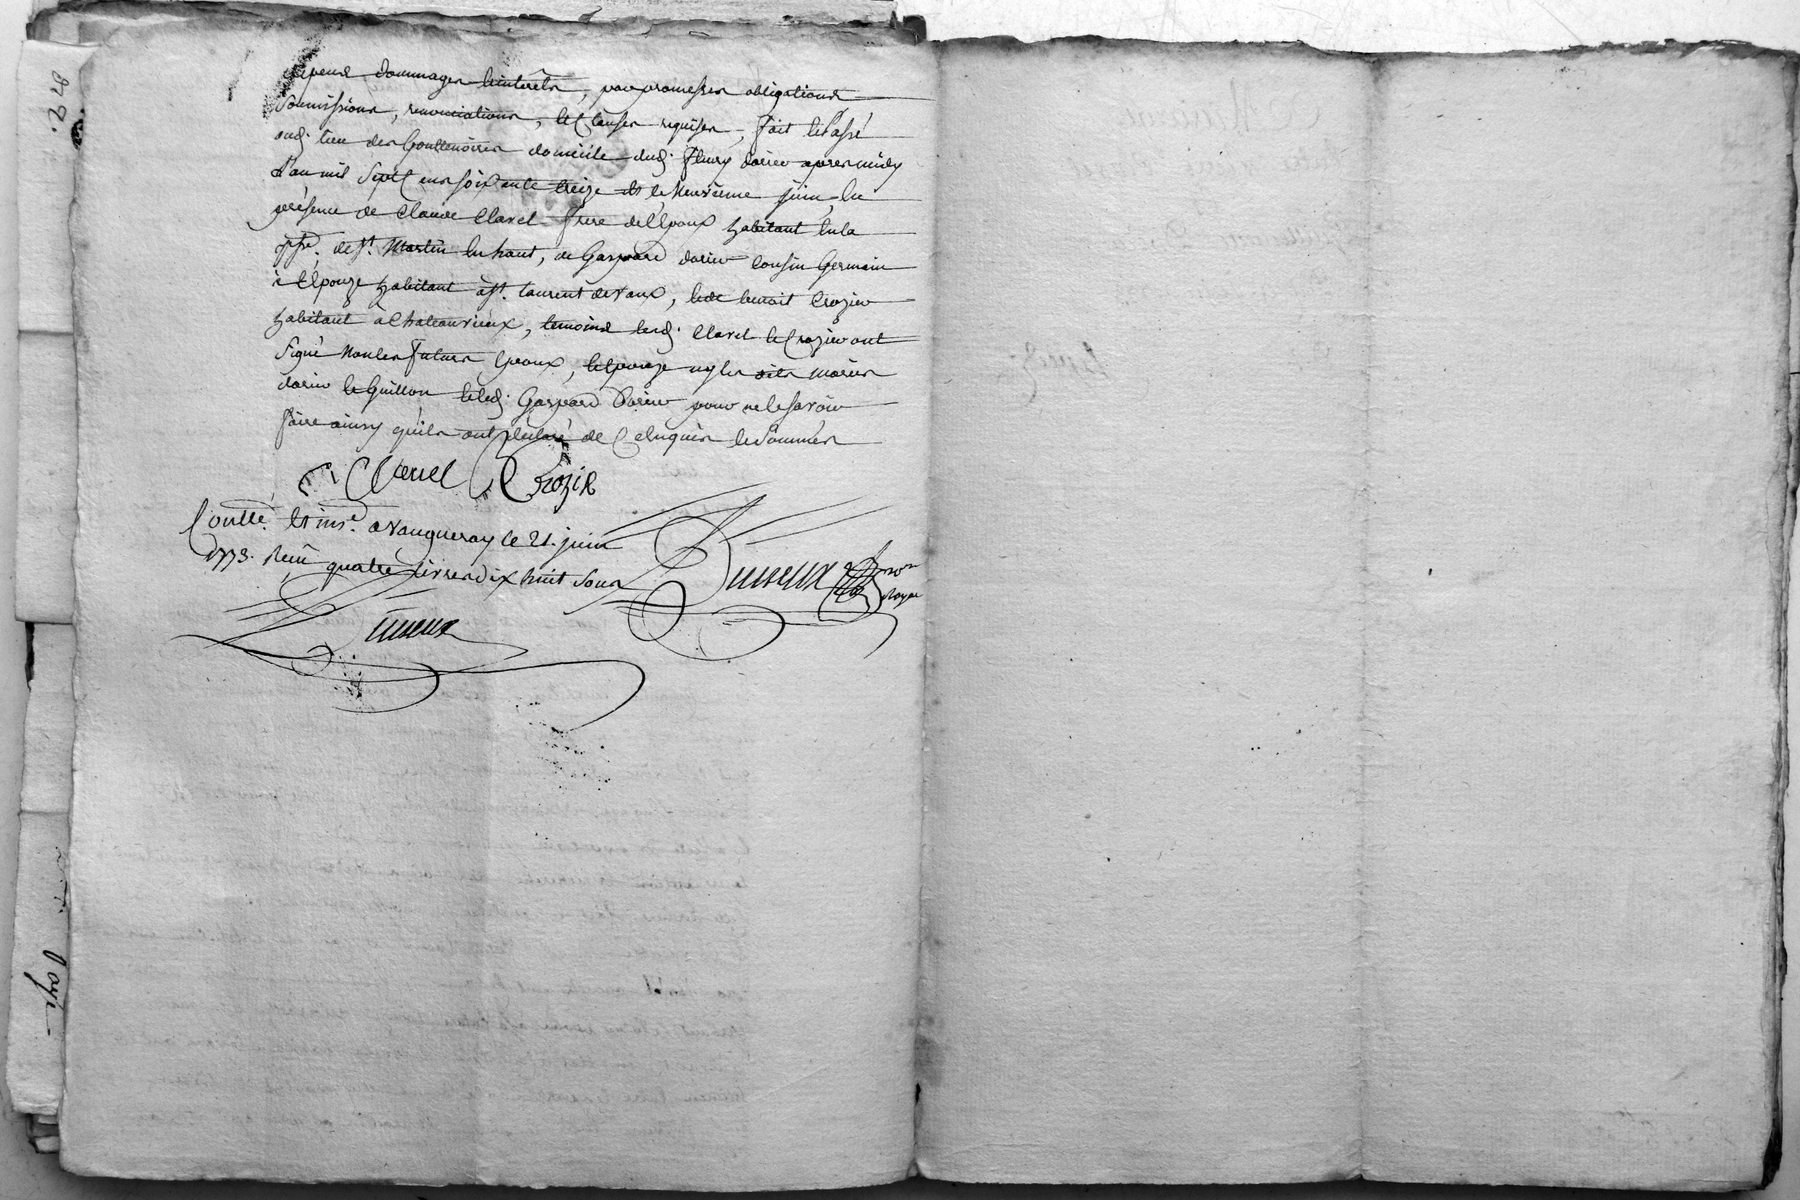 depens dommages & interets, par promesses obligations
soumissions, renonciations, & Clauses requises, fait & Passé
aud. lieu des Gouttenoires domicile dud. fleury dorier apres midy
L'an mil Sept cens soixante treize & le Neuvieme juin, En
présence de Claude Clavel frere de l'Epoux habitant En la
psse. de st. Martin En haut, de Gaspard dorier Cousin Germain
à l'Epouze habitant à st. Laurent de Vaux, & de benoit Crozier
habitant à Chateauvieux, temoins lesd. Clavel & Crozier ont
signé Non les futurs Epoux, & Epouze ny les dits mariés
dorier & Guillon & led. Gaspard Dorier pour ne le savoir
faire ainsy qu'ils ont declaré de Ce Enquis & Sommés
C Clavel B Crozier
Contllé. & insé. a Vaugneray le 21. juin
1773. Reçu quatre livres dix huit sous
nore
Royal